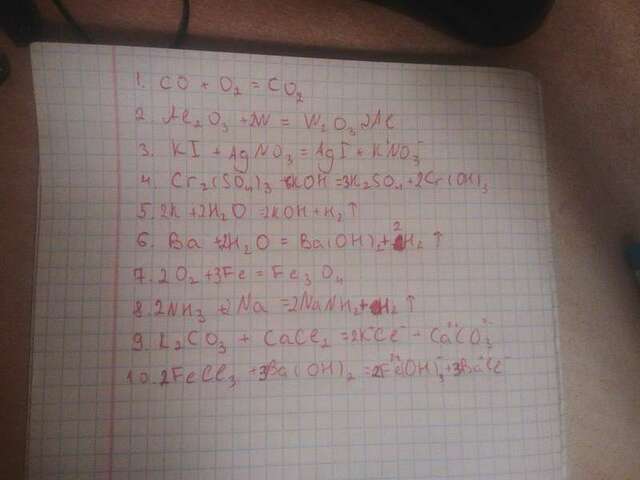 1. CO + O2 = CO2
2. Al2O3 + 2W = W2O3 2Al
3. KI + AgNO3 = AgI + KNO3
4. Cr2(SO4)3 + 6KOH = 3K2SO4 + 2Cr(OH)3
5. 2K + 2H2O = 2KOH + H2 ↑
6. Ba + 2H2O = Ba(OH)2 + H2 ↑
7. 2O2 + 3Fe = Fe3O4
8. 2NH3 + Na = 2NaNH2 + H2 ↑
9. K2CO3 + CaCl2 = 2KCl - CaCO3
10. 2FeCl3 + 3Ba(OH)2 = 2Fe(OH)3 + 3BaCl